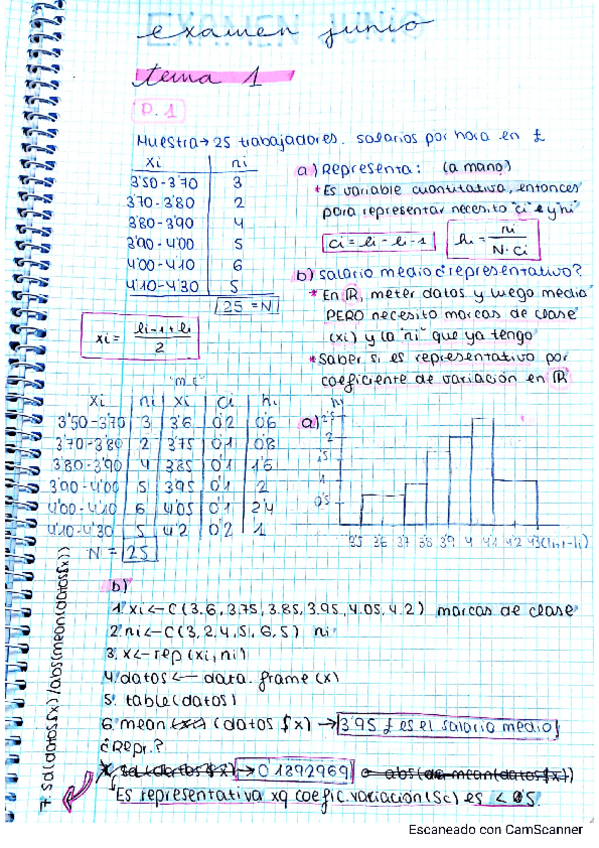 EXAMEN JUNIO
examen junio
tema 1
P.1
Muestra → 25 trabajadores. salarios por hora en £
xi ni
3'50-3'70 3
3'70-3'80 2
3'80-3'90 4
3'90-4'00 5
4'00-4'10 6
4'10-4'30 5
25 = N
xi = li-1+li / 2
a) Representa: (a mano)
* Es variable cuantitativa, entonces
para representar necesito "ci" y "hi"
ci = li - li-1
hi = ni / N·ci
b) salario medio ¿representativo?
* En R, meter datos y luego media
PERO necesito marcas de clase
(xi) y la "ni" que ya tengo
* Saber si es representativo por
coeficiente de variación en R
"m.c"
xi ni xi ci hi
3'50-3'70 3 3'6 0'2 0'6
3'70-3'80 2 3'75 0'1 0'8
3'80-3'90 4 3'85 0'1 1'6
3'90-4'00 5 3'95 0'1 2
4'00-4'10 6 4'05 0'1 2'4
4'10-4'30 5 4'2 0'2 1
N = 25
a)
hi
2'5
2
1'5
1
0'5
3'5 3'6 3'7 3'8 3'9 4 4'1 4'2 4'3 (li-1-li)
b)
1. xi <- C(3.6, 3.75, 3.85, 3.95, 4.05, 4.2) marcas de clase
2. ni <- C(3, 2, 4, 5, 6, 5) ni
3. x <- rep(xi, ni)
4. datos <- data.frame(x)
5. table(datos)
6. mean (datos $x) → 3'95 £ es el salario medio
¿Repr.?
7. sd(datos$x) → 0'1892969 abs(mean(datos$x))
Es representativa xq coefic. variación (Sc) es < 0'5.
7. sd(datos$x)/abs(mean(datos$x))
Escaneado con CamScanner